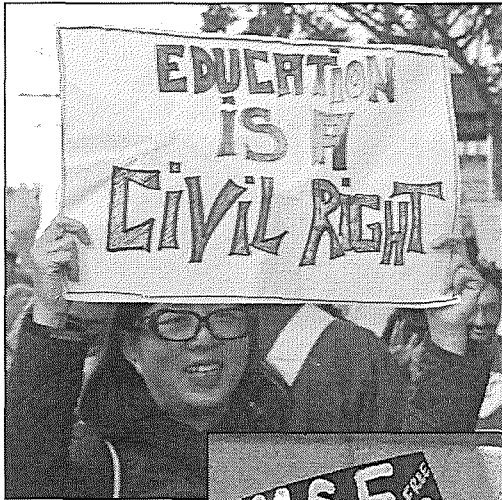 EDUCATION
IS A
CIVIL RIGHT
FREE